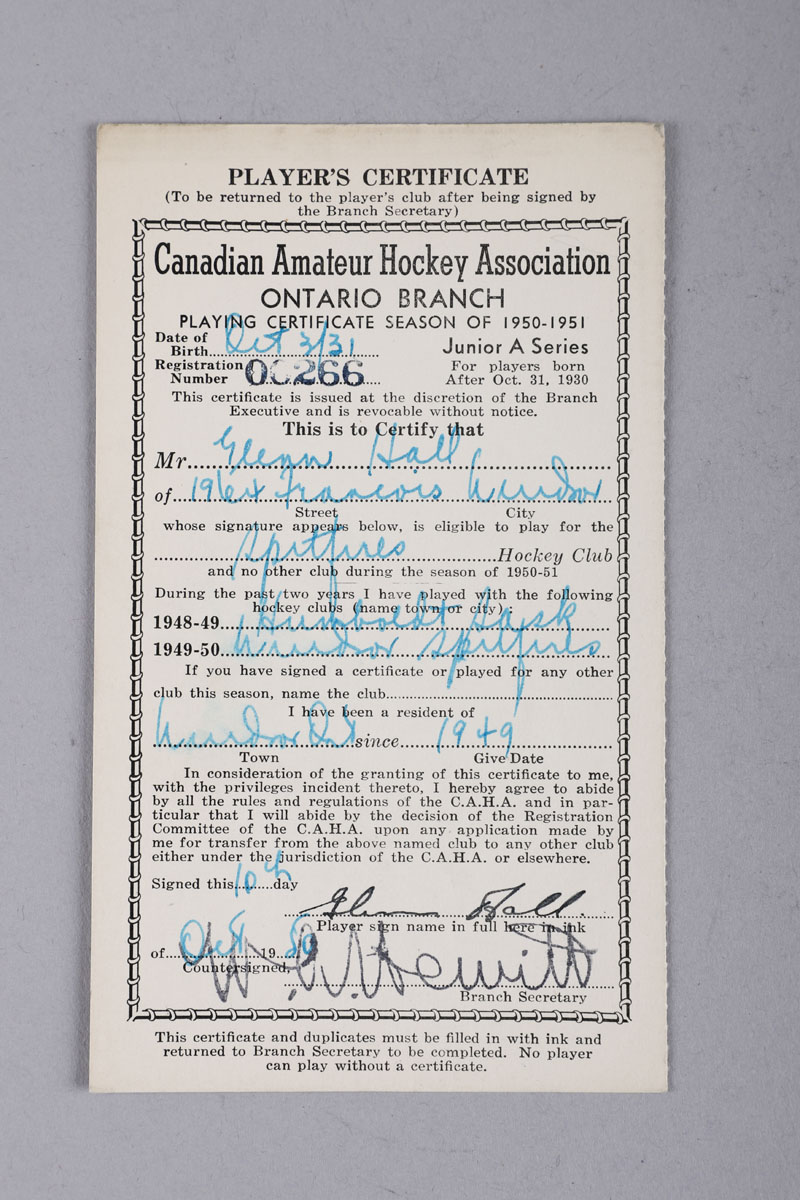 PLAYER'S CERTIFICATE
(To be returned to the player's club after being signed by
the Branch Secretary)
Canadian Amateur Hockey Association
ONTARIO BRANCH
PLAYING CERTIFICATE SEASON OF 1950-1951
Date of Birth Oct 3/31
Junior A Series
Registration Number 00266
For players born
After Oct. 31, 1930
This certificate is issued at the discretion of the Branch
Executive and is revocable without notice.
This is to Certify that
Mr. Glenn Hall
of Francois Windsor
Street City
whose signature appears below, is eligible to play for the
Spitfires Hockey Club
and no other club during the season of 1950-51
During the past two years I have played with the following
hockey clubs (name town or city):
1948-49 Humboldt Sask
1949-50 Windsor Spitfires
If you have signed a certificate or played for any other
club this season, name the club
I have been a resident of
Windsor Ont since 1949
Town Give Date
In consideration of the granting of this certificate to me,
with the privileges incident thereto, I hereby agree to abide
by all the rules and regulations of the C.A.H.A. and in par-
ticular that I will abide by the decision of the Registration
Committee of the C.A.H.A. upon any application made by
me for transfer from the above named club to any other club
either under the jurisdiction of the C.A.H.A. or elsewhere.
Signed this 10th day
Glenn Hall.
Player sign name in full here in ink
of Oct 1950
Countersigned,
W. A. Hewitt
Branch Secretary
This certificate and duplicates must be filled in with ink and
returned to Branch Secretary to be completed. No player
can play without a certificate.